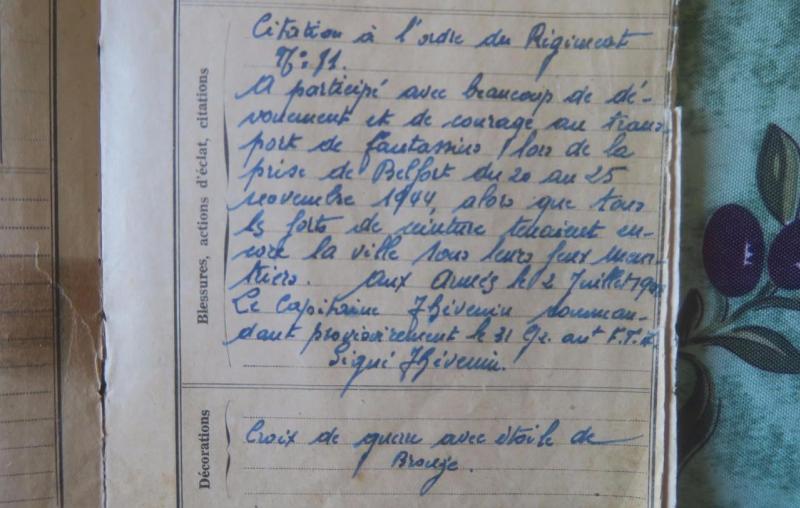 Blessures, actions d'éclat, citations
Citation à l'ordre du Régiment
N° 71.
A participé avec beaucoup de dé-
vouement et de courage au trans
port de fantassins lors de la
prise de Belfort du 20 au 25
novembre 1944 alors que tous
les forts de ceinture tenaient en-
core la ville sous leurs feux meur-
triers. Aux Armées le 2 Juillet
Le Capitaine Thévenin comman-
dant provisoirement le 31 F.T.A.
Signé Thévenin.
Décorations
Croix de guerre avec étoile de
Bronze.